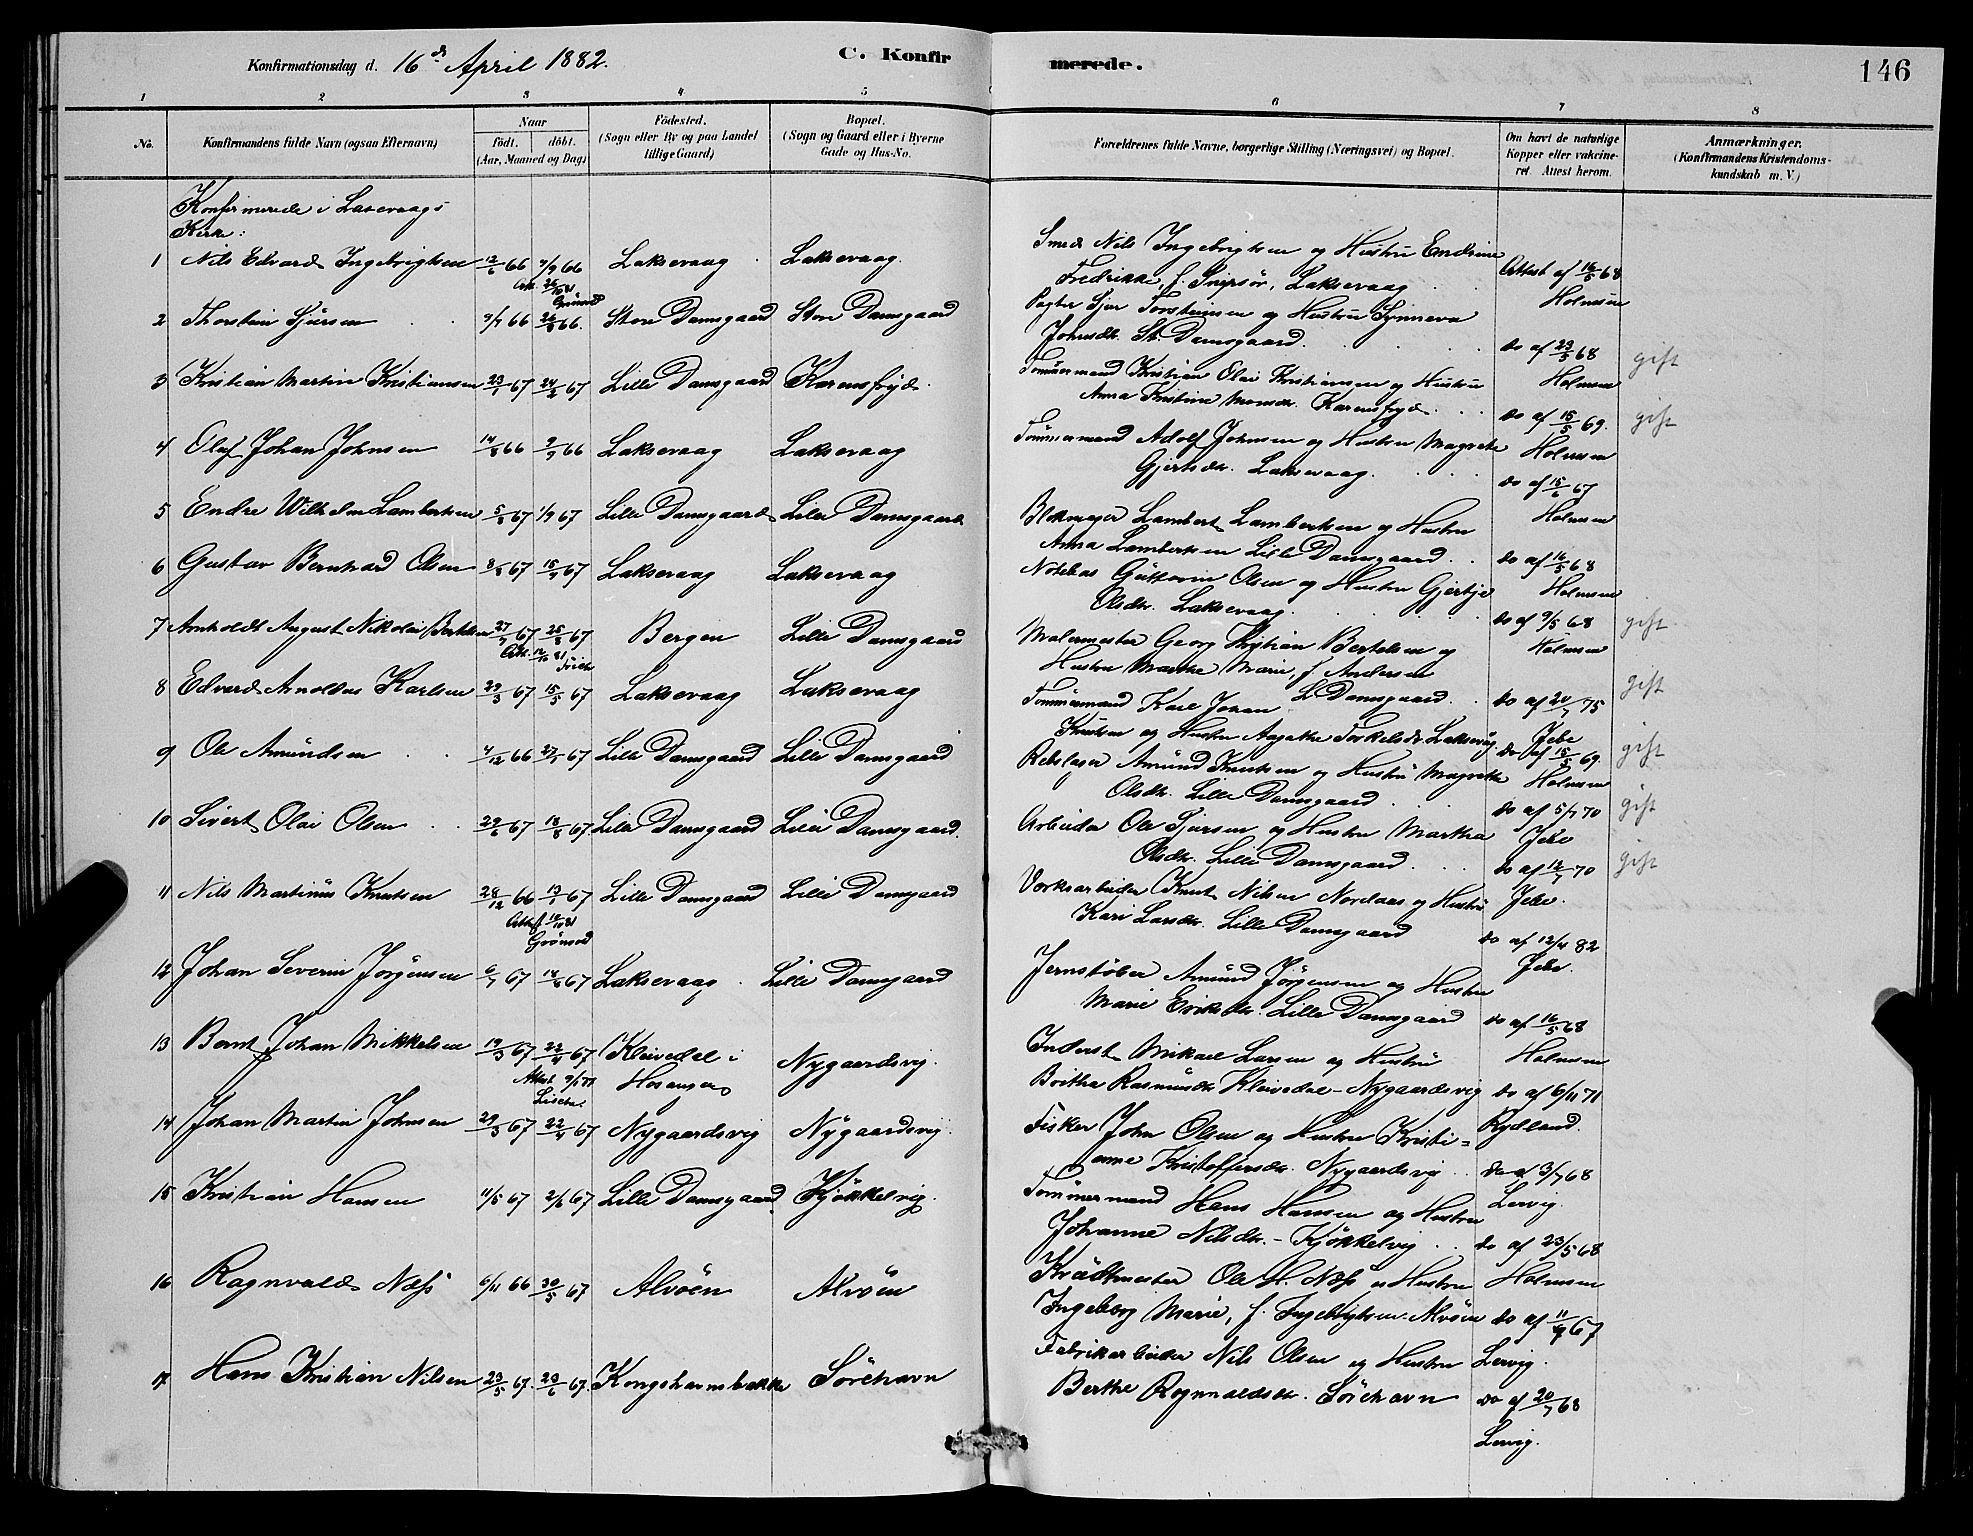 Konfirmationsdag d. 16de April 1882.
C. Konfirmerede.
146
1 2 3 4 5 6 7 8
No.
Konfirmandens fulde Navn (ogsaa Efternavn)
Naar
födt. döbt.
(Aar, Maaned og Dag)
Födested.
(Sogn eller By og paa Landet
tillige Gaard)
Bopæl.
(Sogn og Gaard eller i Byerne
Gade og Hus-No.
Forældrenes fulde Navne, borgerlige Stilling (Næringsvei) og Bopæl.
Om havt de naturlige
Kopper eller vakcine-
ret. Attest herom.
Anmærkninger.
(Konfirmandens Kristendoms-
kundskab m. V.)
Konfirmerede i Laxevaags
Kirke:
1 Nils Edvard Ingebrigtsen 12/6 66 7/9 66 Laksevaag Laksevaag.
Smed Nils Ingebrigtsen og Hustru Endrine
Fredrikke, f. Laksevaag
Attest af 16/5 68
Holmsen
2 Thorstein Sjursen 9/7 66 26/8 66. Store Damsgaard Store Damsgaard
Pagter Sjur Torsteinsen og Hustru Synneva
Johnsdr. St. Damsgaard.
do af 23/5 68
Holmsen
gift
3 Kristian Martin Kristiansen 23/1 67 24/2 67 Lille Damsgaard Karensfryd.
Tömmermand Kristian Olai Kristiansen og Hustru
Anna Kristine Monsdr. Karensfryd.
do af 15/5 69.
Holmsen
gift
4 Olaf Johan Johnsen 14/8 66 9/9 66 Laksevaag Laksevaag
Tömmermand Adolf Johnsen og Hustru Magrete
Gjertsdr. Laksevaag.
do af 15/6 67
Holmsen
5 Endre Wilhelm Lambertsen 5/8 67 1/9 67 Lille Damsgaard Lille Damsgaard
Lambert Lambertsen og Hustru
Anna Lambertsen Lille Damsgaard.
do af 16/5 68
Holmsen
6 Gustav Bernhard Olsen 8/8 67 15/9 67 Laksevaag Laksevaag
Notebas Guttorm Olsen og Hustru Gjertje
Olsdr. Laksevaag.
do af 9/5 68
Holmsen
gift.
7 Arnholdt August Nikolai Bertelsen 27/7 67 25/8 67 Bergen Lille Damsgaard
Malermester Georg Kristian Bertelsen og
Hustru Marthe Marie, f. Andersen
L. Damsgaard.
do af 20/7 75
Jebe
gift
8 Edvard Arnoldus Karlsen 29/3 67 15/5 67 Laksevaag Laksevaag
Tömmermand Karl Johan
Knutsen og Hustru Aagathe Torkelsdr. Laksevåg
do af 15/5 69.
Holmsen
gift
9 Ole Amundsen 4/12 66 27/1 67 Lille Damsgaard Lille Damsgaard
Rebslager Amund Knutsen og Hustru Magrethe
Olsdr. Lille Damsgaard
do af 5/7 70
Jebe
gift
10 Sivert Olai Olsen 29/6 67 18/8 67. Lille Damsgaard Lille Damsgaard.
Arbeider Ole Sjursen og Hustru Martha
Olsdr. Lille Damsgaard.
do af 12/7 70
Jebe.
gift
11 Nils Martinius Knutsen 28/12 66 13/1 67 Lille Damsgaard Lille Damsgaard
Værksarbeider Knut Nilsen Nordaas og Hustru
Kari Larsdr. Lille Damsgaard
do af 12/4 82
Jebe.
12 Johan Severin Jörgensen 6/7 67 18/8 67 Laksevaag Lille Damsgaard
Jernstöber Amund Jörgensen og Hustru
Marie Eriksdr. Lille Damsgaard
do af 16/5 68
Holmsen
13 Bernt Johan Mikkelsen 19/3 67 22/4 67 Kleivedal i
Hosanger Nygaardsvig.
Inderst Mikael Larsen og Hustru
Brithe Rasmusdr. Kleivedal - Nygaardsvig
do af 6/11 71
Rydland.
14 Johan Martin Johnsen 29/3 67 22/4 67 Nygaardsvig Nygaardsvig.
Fisker John Olsen og Hustru Kristi-
anne Kristoffersdr. Nygaardsvig
do af 3/7 68
Lervig.
15 Kristian Hansen 11/5 67 2/6 67 Lille Damsgaard Kjökkelvig.
Tömmermand Hans Hansen og Hustru
Johanne Nilsdr. - Kjökkelvig
do af 23/5 68
Holmsen
16 Ragnvald Næss 6/11 66 30/5 67 Alvöen Alvöen
Krudtmester Ole H. Næss og Hustru
Ingeborg Marie, f. Ingebrigtsen. Alvöen
do af 11/9 67
Lervig.
17 Hans Kristian Nilsen 23/5 67. 23/6 67. Kongshavnsbakke Sörehavn
Fabrikarbeider Nils Olsen og Hustru
Berthe Rognvaldsdr. Sörehavn
do af 20/7 68
Lervig.